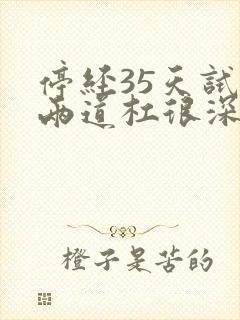 停经35天試
两道杠很深
橙子是苦的